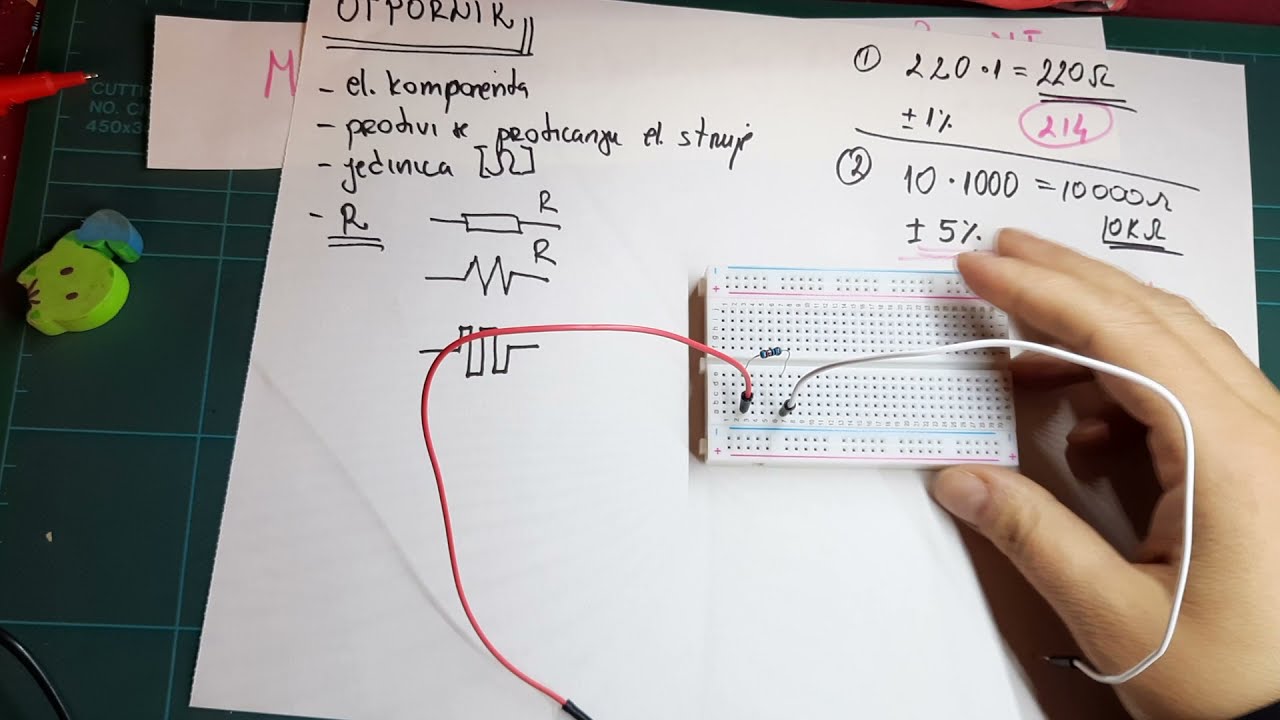 OTPORNIK
- el. komponenta
- protivi se proticanju el. struje
- jedinica [Ω]
- R
R
R
M
① 220 · 1 = 220 Ω
± 1%
214
② 10 · 1000 = 10000 Ω
± 5%
10K Ω
CUTTI
NO. C
450x3